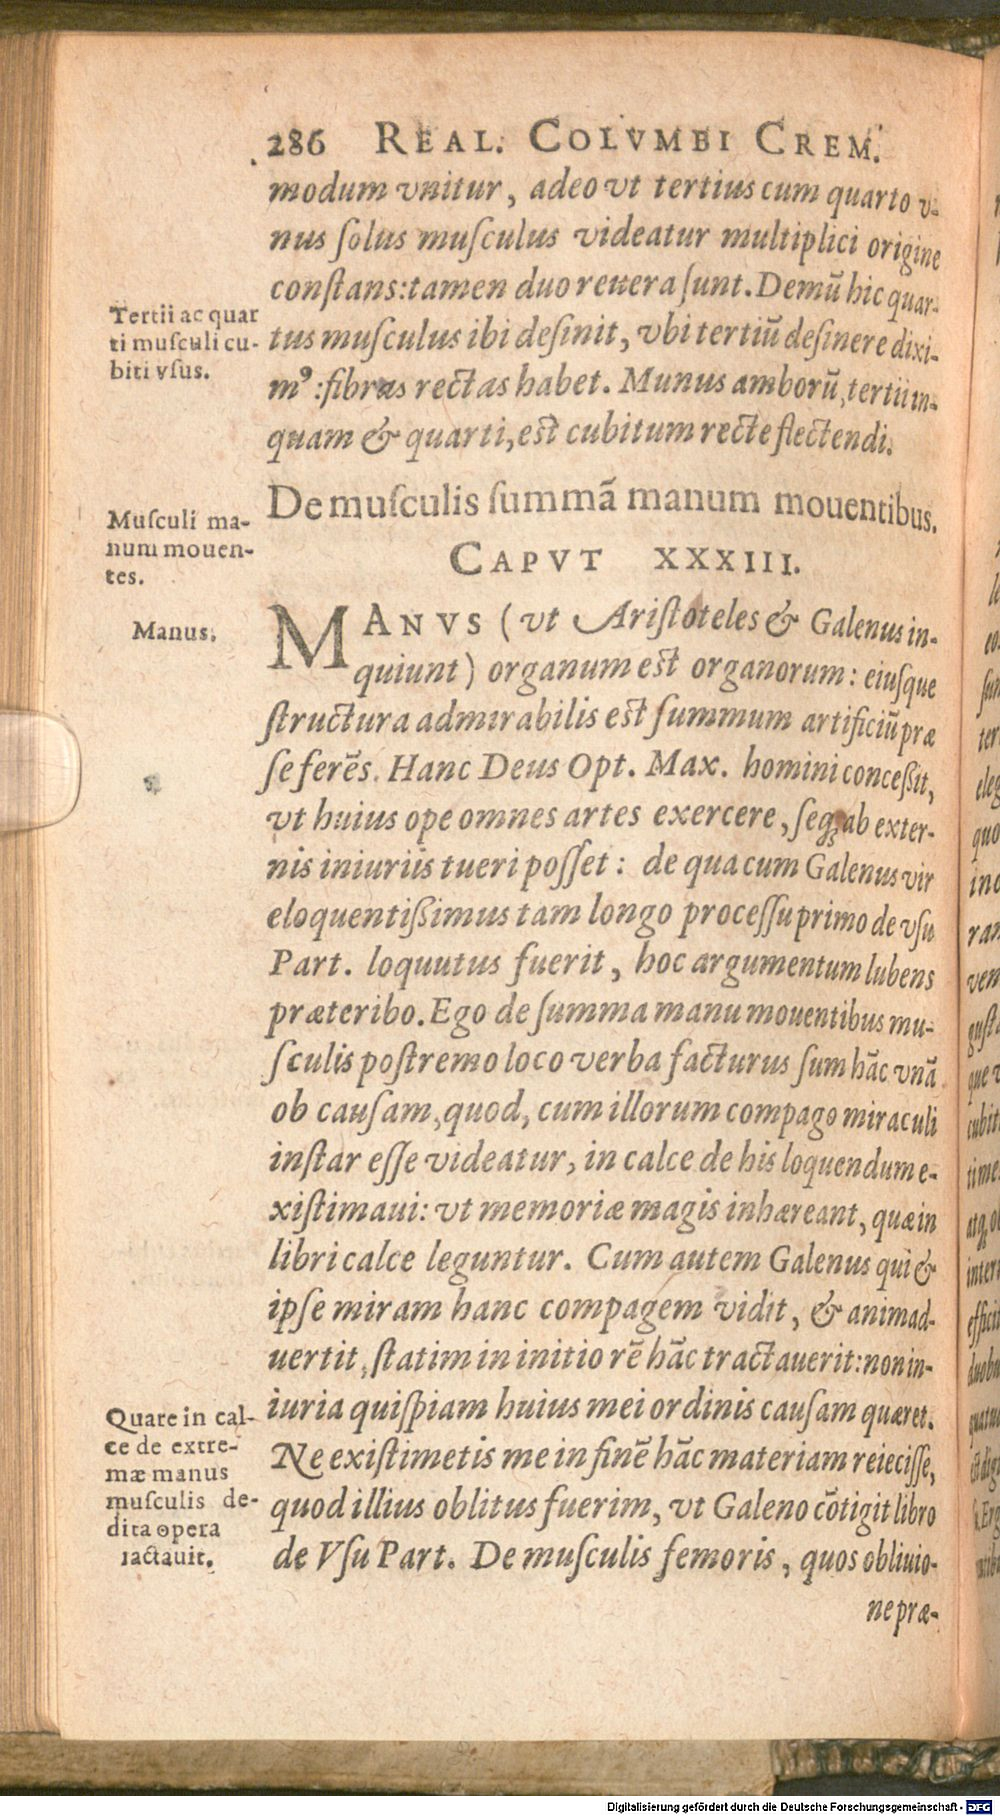 286 REAL. COLVMBI CREM.
modum vnitur, adeo vt tertius cum quarto v-
nus ſolus muſculus videatur multiplici origine
conſtans: tamen duo reuera ſunt. Demũ hic quar-
Tertii ac quar
ti muſculi cu-
biti vſus.
tus muſculus ibi deſinit, vbi tertiũ deſinere dixi-
mꝰ: fibras rectas habet. Munus amborũ, tertii in-
quam & quarti, eſt cubitum recte flectendi.
De muſculis ſummã manum mouentibus.
Muſculi ma-
num mouen-
tes.
CAPVT XXXIII.
Manus.
MANVS (vt Ariſtoteles & Galenus in-
quiunt) organum eſt organorum: eiuſque
ſtructura admirabilis eſt ſummum artificiũ præ
ſe ferẽs. Hanc Deus Opt. Max. homini conceßit,
vt huius ope omnes artes exercere, ſeq́ꝫ ab exter-
nis iniuriis tueri poſſet: de qua cum Galenus vir
eloquentißimus tam longo proceſſu primo de vſu
Part. loquutus fuerit, hoc argumentum lubens
præteribo. Ego de ſumma manu mouentibus mu-
ſculis poſtremo loco verba facturus ſum hãc vnã
ob cauſam, quod, cum illorum compago miraculi
inſtar eſſe videatur, in calce de his loquendum e-
xiſtimaui: vt memoriæ magis inhæreant, quæ in
libri calce leguntur. Cum autem Galenus qui &
ipſe miram hanc compagem vidit, & animad-
uertit, ſtatim in initio rẽ hãc tractauerit: non in-
iuria quiſpiam huius mei ordinis cauſam quæret.
Quare in cal-
ce de extre-
mæ manus
muſculis de-
dita opera
tactauit.
Ne exiſtimetis me in finẽ hãc materiam reieciſſe,
quod illius oblitus fuerim, vt Galeno cõtigit libro
de Vſu Part. De muſculis femoris, quos obliuio-
ne præ-
Digitalisierung gefördert durch die Deutsche Forschungsgemeinschaft - DFG